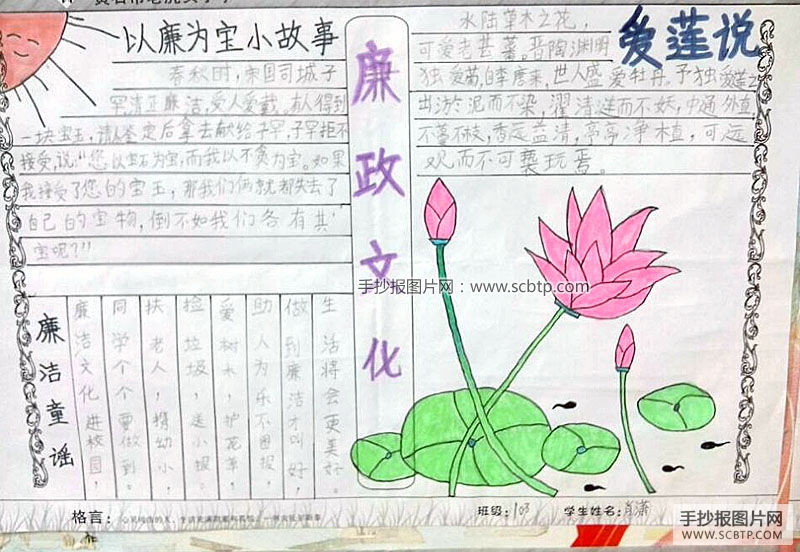 以廉为宝小故事
春秋时，宋国司城子
罕清正廉洁，受人爱戴，有人得到
一块宝玉，请人鉴定后拿去献给子罕，子罕拒不
接受，说"您以宝玉为宝，而我以不贪为宝。如果
我接受了您的宝玉，那我们俩就都失去了
自己的宝物，倒不如我们各有其
宝呢?"
廉政文化
爱莲说
水陆草木之花，
可爱者甚蕃。晋陶渊明
独爱菊，自李唐来，世人盛爱牡丹。予独爱莲之
出淤泥而不染，濯清涟而不妖，中通外直，
不蔓不枝，香远益清，亭亭净植，可远
观而不可亵玩焉。
手抄报图片网：www.scbtp.com
廉洁童谣
廉洁文化进校园，
同学个个要做到。
扶老人，携幼小，
捡垃圾，送小报。
爱树木，护花草，
助人为乐不图报，
做到廉洁才叫好，
生活将会更美好。
格言：
班级：103
学生姓名：肖潇
手抄报图片网
WWW.SCBTP.COM